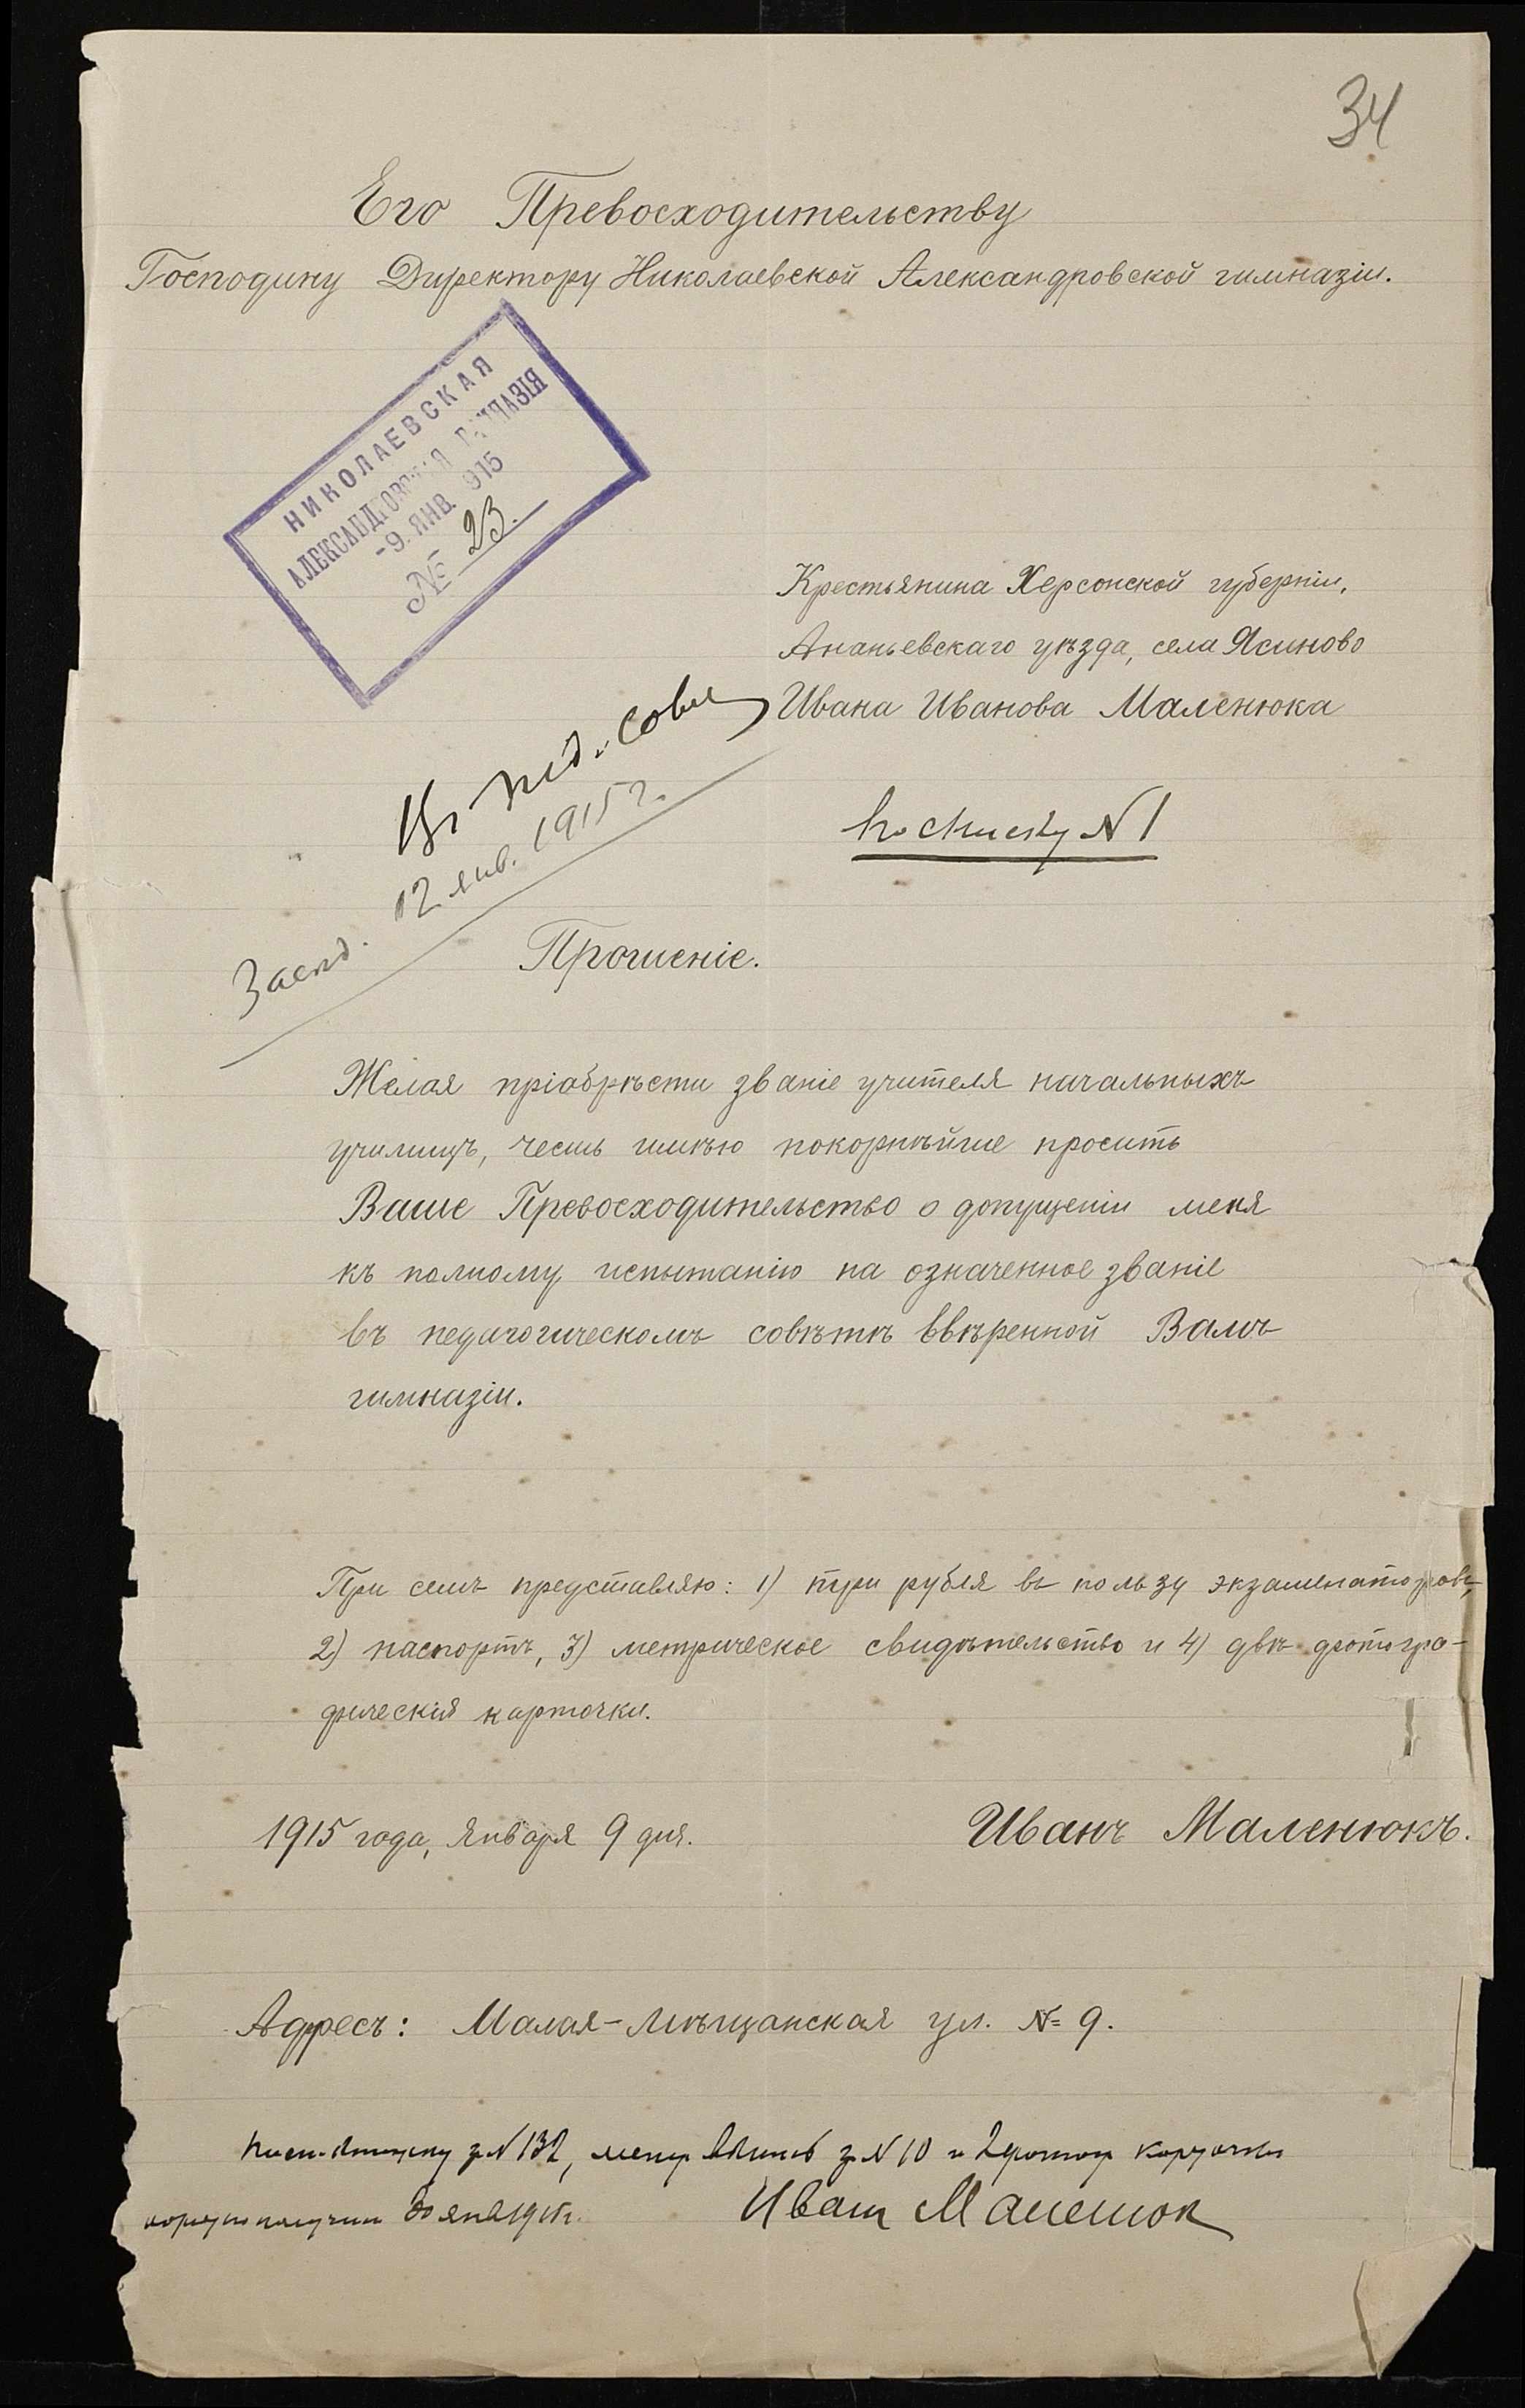 34
Его Превосходительству
Господину Директору Николаевской Александровской гимназіи.
НИКОЛАЕВСКАЯ
АЛЕКСАНДРОВСКАЯ ГИМНАЗІЯ
-9. ЯНВ. 915
№ 23.
Крестьянина Херсонской губерніи,
Ананьевскаго уѣзда, села Ясиново
Ивана Иванова Маленюка
Въ пед. сове
Засѣд. 12 янв. 1915 г.
Къ списку N 1
Прошеніе.
Желая пріабрѣсти званіе учителя начальныхъ
училищъ, честь имѣю покорнѣйше просить
Ваше Превосходительство о допущеніи меня
къ полному испытанію на означенное званіе
въ педагогическомъ совѣтѣ ввѣренной Вамъ
гимназіи.
При семъ представляю: 1) три рубля въ пользу экзаменаторовъ,
2) паспортъ, 3) метрическое свидѣтельство и 4) двѣ фотогра-
фическія карточки.
1915 года, января 9 дня.
Иванъ Маленюкъ.
Адресъ: Малая-Мѣщанская ул. № 9.
за N 132, метр за N 10 и 2 фотогр карточки
получилъ
Иван Маленюк